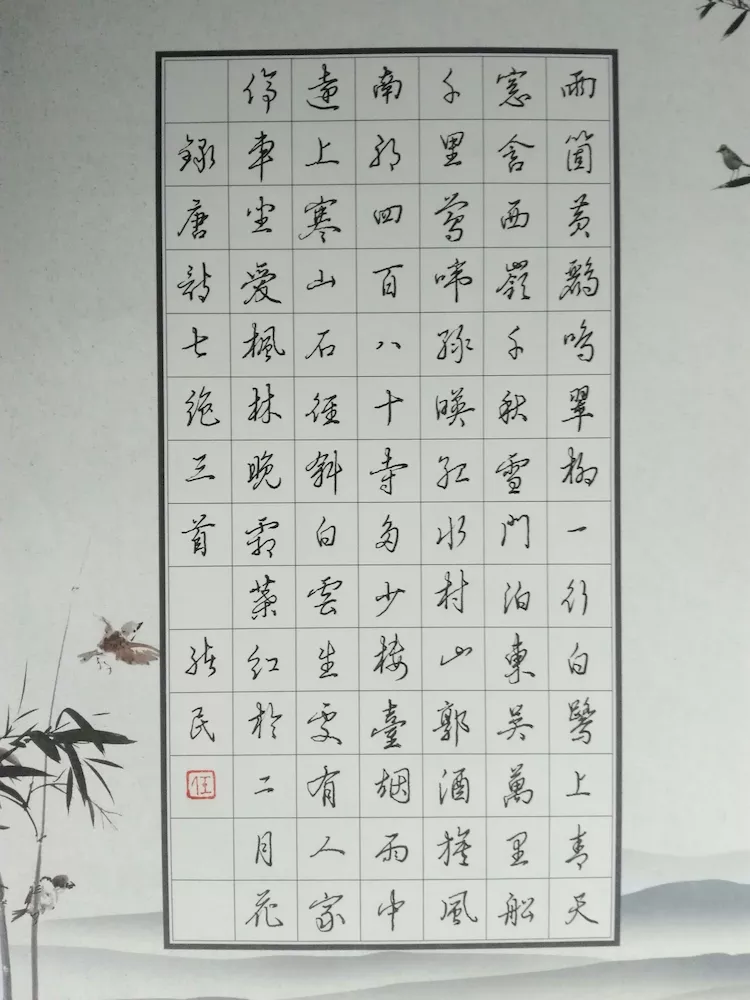 兩箇黃鸝鳴翠柳一行白鷺上青天
窻含西嶺千秋雪門泊東吳萬里船
千里鶯啼綠暎紅水村山郭酒旗風
南朝四百八十寺多少樓臺烟雨中
遠上寒山石徑斜白雲生處有人家
停車坐愛楓林晚霜葉紅於二月花
錄唐詩七絕三首 民